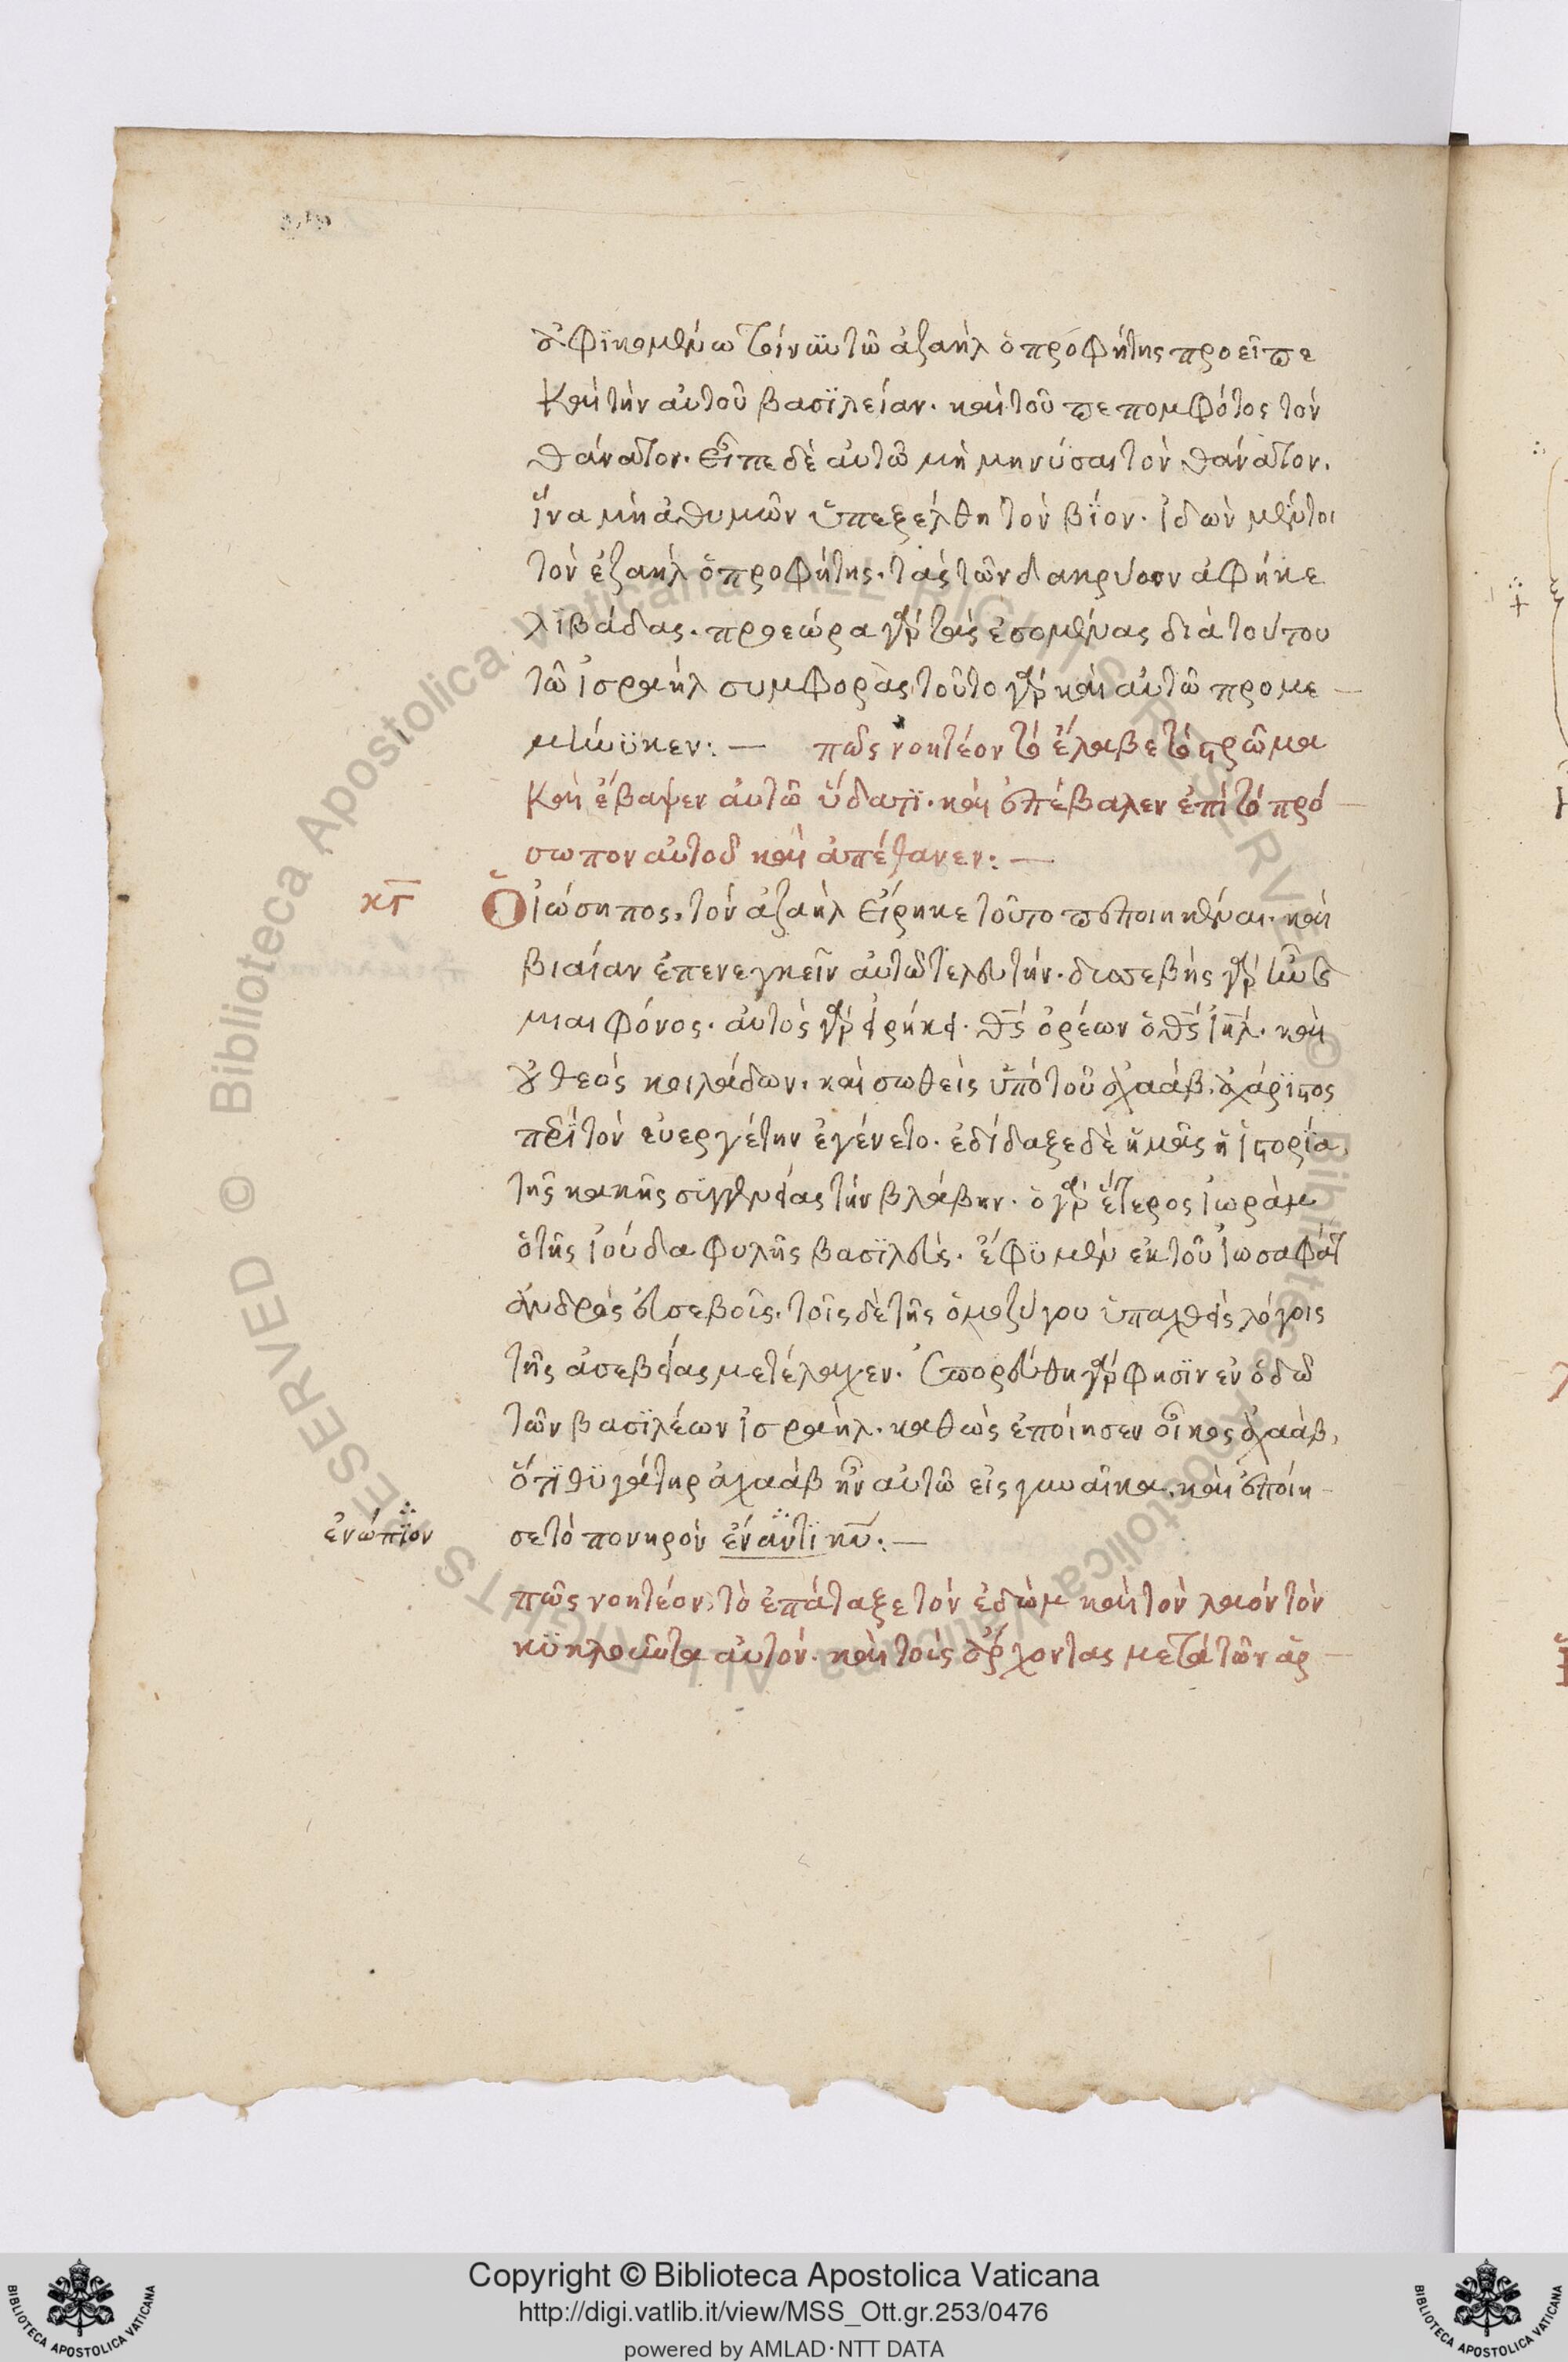 ἀφϊκομένω τοίνυν αὐτῶ ἀζαὴλ ὁ προφήτης προεῖπε
καὶ τὴν αὐτοῦ βασϊλείαν. καὶ τοῦ πεπομφότος τὸν
θάνατον. εἶπε δὲ αὐτῶ μὴ μηνύσαι τὸν θάνατον.
ἵνα μὴ ἀθυμῶν ὑπεξέλθη τὸν βίον. ἰδὼν μέντοι
τὸν ἐζαὴλ ὁ προφήτης. τὰς τῶν δακρύων ἀφῆκε
λϊβάδας. προεώρα γὰρ τὰς ἐσομένας διὰ τούτου
τῶ ἰσραὴλ συμφορὰς τοῦτο γὰρ καὶ αὐτῶ προμε
μήνϋκεν:— πῶς νοητέον τὸ ἔλαβε τὸ στρῶμα
καὶ ἔβαψεν αὐτῶ ὕδατϊ. καὶ ἐπέβαλεν ἐπὶ τὸ πρό
σωπον αὐτοῦ καὶ ἀπέθανεν:—
κγ Ὁ ἰώσηπος, τὸν ἀζαὴλ εἴρηκε τοῦτο πεποιηκέναι. καὶ
βιαίαν ἐπενεγκεῖν αὐτῶ τελευτήν. δυσσεβὴς γὰρ
μιαιφόνος. αὐτὸς γὰρ εἰρήκει. θς ὀρέων ὁ θς ιηλ. καὶ
οὐ θεὸς κοιλάδων. καὶ σωθεὶς ὑπὸ τοῦ ἀχαάβ. ἀχάρϊστος
περὶ τὸν εὐεργέτην ἐγένετο. ἐδίδαξε δὲ ἡμᾶς ἡ ἱστορία
τῆς κακῆς συγγενείας τὴν βλάβην. ὁ γὰρ ἕτερος ἰωρὰμ
ὁ τῆς ἰούδα φυλῆς βασϊλεύς. ἔφϋ μὲν ἐκ τοῦ ἰωσαφὰτ
ἀνδρὸς εὐσεβοῦς. τοῖς δὲ τῆς ὁμοζύγου ὑπαχθεὶς λόγοις
τῆς ἀσεβείας μετέλαχεν. ἐπορεύθη γὰρ φησϊν ἐν ὁδῶ
τῶν βασϊλέων ἰσραὴλ. καθὼς ἐποίησεν οἶκος ἀχαάβ,
ὅτϊ θϋγάτηρ ἀχαάβ ἦν αὐτῶ εἰς γυναῖκα. καὶ ἐποίη
ἐνώπϊον
σε τὸ πονηρὸν ἐναντϊ κυ:—
πῶς νοητέον τὸ ἐπάταξε τὸν ἐδὼμ καὶ τὸν λαὸν τὸν
κϋκλοῦντα αὐτόν. καὶ τοὺς ἄρχοντας μετὰ τῶν ἁρ
Copyright © Biblioteca Apostolica Vaticana
http://digi.vatlib.it/view/MSS_Ott.gr.253/0476
powered by AMLAD·NTT DATA
BIBLIOTECA APOSTOLICA VATICANA
BIBLIOTECA APOSTOLICA VATICANA